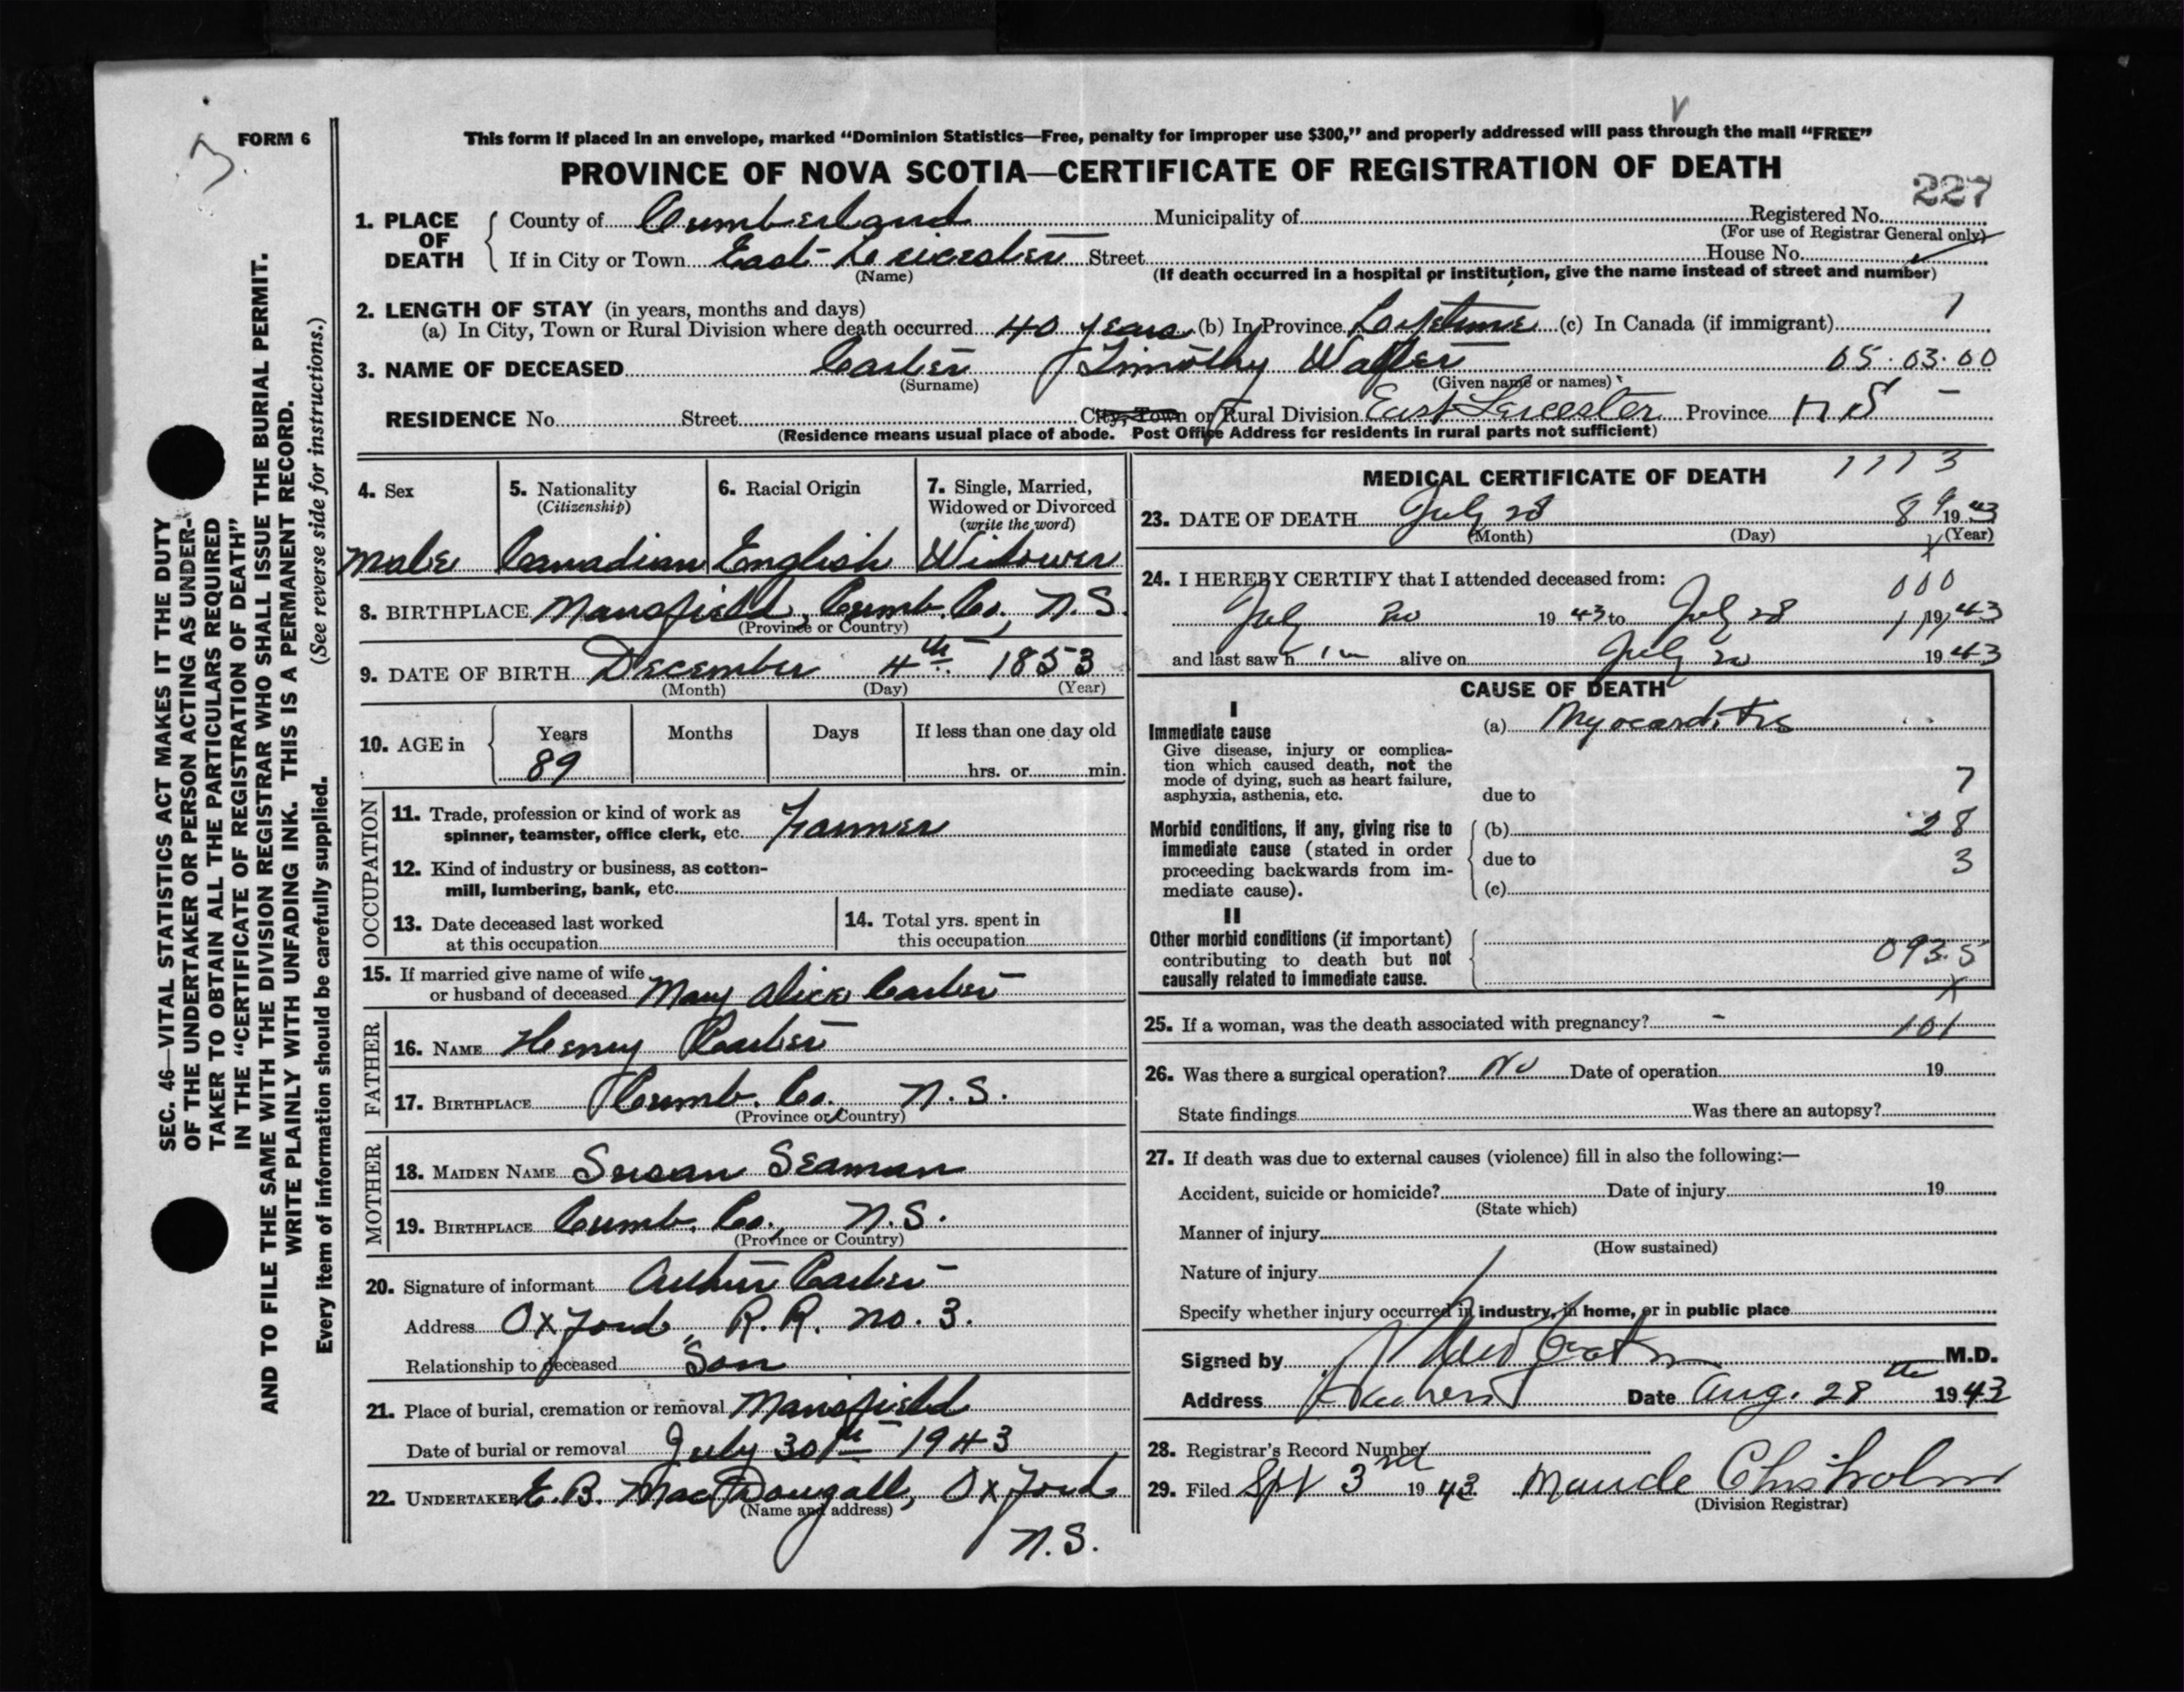 FORM 6
This form if placed in an envelope, marked “Dominion Statistics—Free, penalty for improper use $300,” and properly addressed will pass through the mail “FREE”
PROVINCE OF NOVA SCOTIA—CERTIFICATE OF REGISTRATION OF DEATH
227
1. PLACE OF DEATH
County of Cumberland Municipality of Registered No.
(For use of Registrar General only)
If in City or Town East Leicester Street House No.
(Name) (If death occurred in a hospital or institution, give the name instead of street and number)
2. LENGTH OF STAY (in years, months and days)
(a) In City, Town or Rural Division where death occurred 40 years (b) In Province Lifetime (c) In Canada (if immigrant)
3. NAME OF DECEASED Carter Timothy Walter 05.03.00
(Surname) (Given name or names)
RESIDENCE No. Street City, Town or Rural Division East Leicester Province N S
(Residence means usual place of abode. Post Office Address for residents in rural parts not sufficient)
4. Sex
Male
5. Nationality
(Citizenship)
Canadian
6. Racial Origin
English
7. Single, Married,
Widowed or Divorced
(write the word)
Widower
8. BIRTHPLACE Mansfield, Cumb. Co., N.S.
(Province or Country)
9. DATE OF BIRTH December 4th 1853
(Month) (Day) (Year)
10. AGE in Years Months Days If less than one day old
89 hrs. or min.
OCCUPATION
11. Trade, profession or kind of work as
spinner, teamster, office clerk, etc. Farmer
12. Kind of industry or business, as cotton-
mill, lumbering, bank, etc.
13. Date deceased last worked
at this occupation
14. Total yrs. spent in
this occupation
15. If married give name of wife
or husband of deceased Mary Alice Carter
FATHER
16. NAME Henry Carter
17. BIRTHPLACE Cumb. Co. N.S.
(Province or Country)
MOTHER
18. MAIDEN NAME Susan Seaman
19. BIRTHPLACE Cumb. Co., N.S.
(Province or Country)
20. Signature of informant Arthur Carter
Address Oxford, R.R. no. 3.
Relationship to deceased Son
21. Place of burial, cremation or removal Mansfield
Date of burial or removal July 30th 1943
22. UNDERTAKER E. B. MacDougall, Oxford
(Name and address)
N.S.
MEDICAL CERTIFICATE OF DEATH 1113
23. DATE OF DEATH July 28 89 1943
(Month) (Day) (Year)
24. I HEREBY CERTIFY that I attended deceased from: 000
July 20 1943 to July 28 1943
and last saw him alive on July 20 1943
CAUSE OF DEATH
I
Immediate cause (a) Myocarditis
Give disease, injury or complica-
tion which caused death, not the
mode of dying, such as heart failure,
asphyxia, asthenia, etc. due to 7
Morbid conditions, if any, giving rise to (b) 28
immediate cause (stated in order due to 3
proceeding backwards from im-
mediate cause). (c)
II
Other morbid conditions (if important)
contributing to death but not 093.5
causally related to immediate cause.
25. If a woman, was the death associated with pregnancy? - 101
26. Was there a surgical operation? No Date of operation 19
State findings Was there an autopsy?
27. If death was due to external causes (violence) fill in also the following:—
Accident, suicide or homicide? Date of injury 19
(State which)
Manner of injury
(How sustained)
Nature of injury
Specify whether injury occurred in industry, in home, or in public place
Signed by M.D.
Address Date Aug. 28th 1943
28. Registrar's Record Number
29. Filed Spt 3rd 1943 Maude Chisholm
(Division Registrar)
SEC. 46—VITAL STATISTICS ACT MAKES IT THE DUTY
OF THE UNDERTAKER OR PERSON ACTING AS UNDER-
TAKER TO OBTAIN ALL THE PARTICULARS REQUIRED
IN THE “CERTIFICATE OF REGISTRATION OF DEATH”
AND TO FILE THE SAME WITH THE DIVISION REGISTRAR WHO SHALL ISSUE THE BURIAL PERMIT.
WRITE PLAINLY WITH UNFADING INK. THIS IS A PERMANENT RECORD.
Every item of information should be carefully supplied. (See reverse side for instructions.)